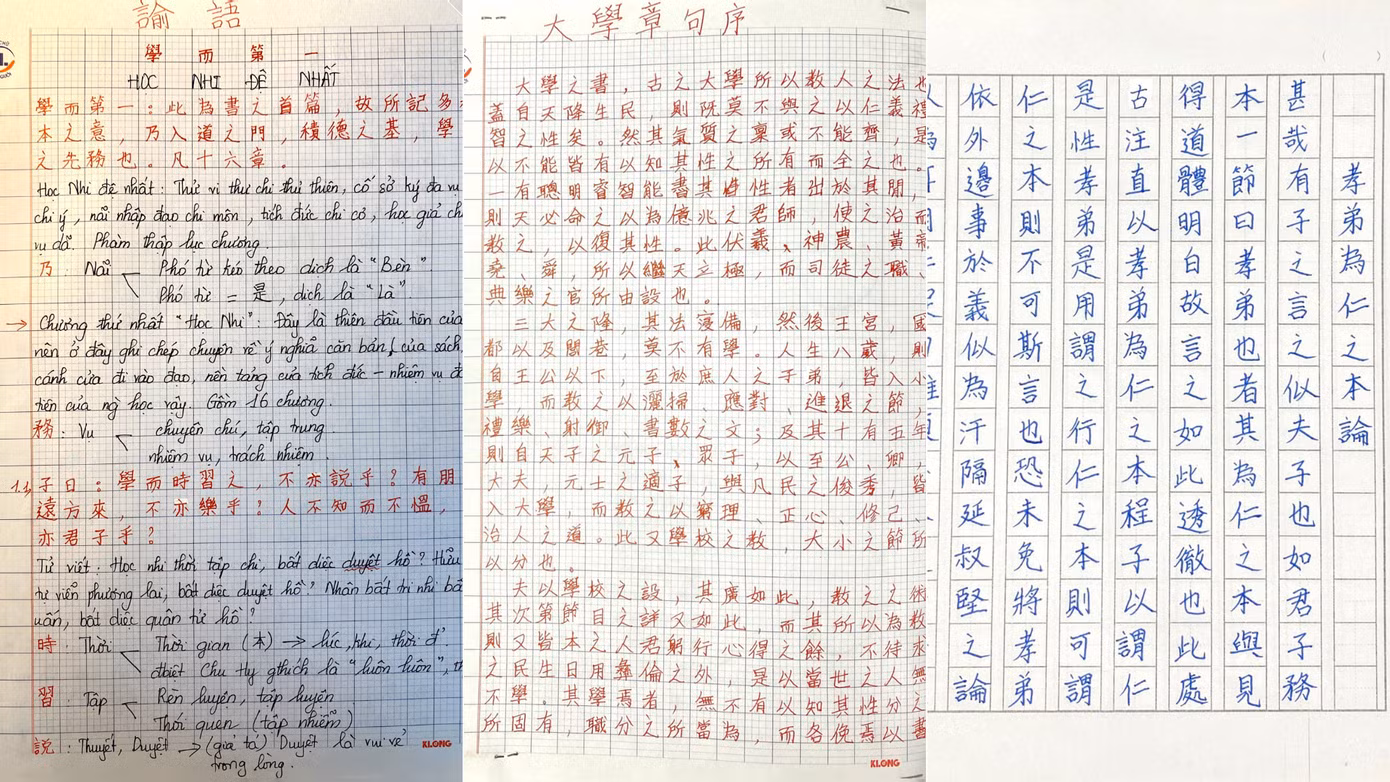 諭 語
學 而 第 一
HỌC NHI ĐỆ NHẤT
學而第一：此為書之首篇，故所記多
本之意，乃入道之門，積德之基，學
之先務也。凡十六章．
Học Nhi đệ nhất: Thử vi thư chi thủ thiên, cố sở ký đa vụ
chi ý, nãi nhập đạo chi môn, tích đức chi cơ, học giả chi
vụ dã. Phàm thập lục chương.
乃: Nãi Phó từ kéo theo dịch là "Bèn".
Phó từ = 是, dịch là "Là".
→ Chương thứ nhất "Học Nhi": Đây là thiên đầu tiên của
nên ở đây ghi chép chuyện về ý nghĩa căn bản của sách,
cánh cửa đi vào đạo, nền tảng của tích đức – nhiệm vụ đ
tiên của ng học vậy. Gồm 16 chương.
務: Vụ chuyên chú, tập trung
nhiệm vụ, trách nhiệm.
1.1, 子曰：學而時習之，不亦説乎？有朋
遠方來，不亦樂乎？人不知而不慍，
亦君子乎？
Tử viết: Học nhi thời tập chi, bất diệc duyệt hồ? Hữu
tự viễn phương lai, bất diệc duyệt hồ? Nhân bất tri nhi bấ
uấn, bất diệc quân tử hồ?
時: Thời Thời gian (本) → lúc, khi, thời đ'.
đbiệt Chu Hy gthích là "luôn luôn", th
習: Tập Rèn luyện, tập luyện
Thói quen (tập nhiễm)
説: Thuyết, Duyệt → (giả tá) Duyệt là vui vẻ
trong lòng.
KLONG
大學章句序
大學之書，古之大學所以教人之法也
蓋自天降生民，則既莫不與之以仁義禮
智之性矣。然其氣質之稟或不能齊，是
以不能皆有以知其性之所有而全之也。
一有聰明睿智能書其性者出於其間，
則天必命之以為億兆之君師，使之治而
教之，以復其性。此伏羲、神農、黃帝
堯、舜，所以繼天立極，而司徒之職、
典樂之官所由設也。
三大之降，其法寖備，然後王宮，國
都以及閭巷，莫不有學。人生八歲，則
自王公以下，至於庶人之子弟，皆入小
學 而教之以灑掃、應對、進退之節，
禮樂、射御、書數之文；及其十有五年
則自天子之元子、眾子，以至公、卿，
大夫 元士之適子，與凡民之俊秀，皆
入大學，而教之以窮理、正心、修己、
治人之道。此又學校之教，大小之節所
以分也。
夫以學校之設，其廣如此，教之之術
其次第節目之詳又如此，而其所以為教
則又皆本之人君躬行心得之餘，不待求
之民生日用彝倫之外，是以當世之人無
不學。其學焉者，無不有以知其性分之
所固有，職分之所當為，而各俛焉以書
KLONG
孝弟為仁之本論
甚哉有子之言之似夫子也如君子務
本一節曰孝弟也者其為仁之本與見
得道體明白故言之如此透徹也此處
古注直以孝弟為仁之本程子以謂仁
是性孝弟是用謂之行仁之本則可謂
仁之本則不可斯言也恐未免將孝弟
依外邊事於義似為汗隔延叔堅之論